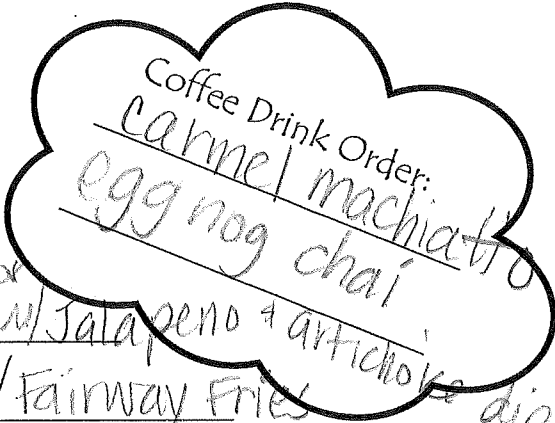 Coffee Drink Order:
carmel machiatto
egg nog chai
w/ Jalapeno & artichoke dip
/ Fairway Fries